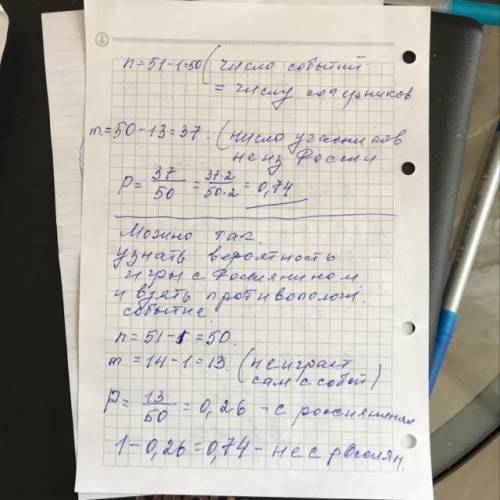 n=51-1=50 (число событий
= числу соперников
m=50-13=37. (число участников
не из России
P= 37/50 = 37·2/50·2 = 0,74
Можно так.
узнать вероятность
игры с Россиянином
и взять противополож.
событие.
n=51-1=50.
m=14-1=13. (не играет
сам с собой)
P= 13/50 = 0,26 - с россиянином
1-0,26=0,74 - не с россиян.